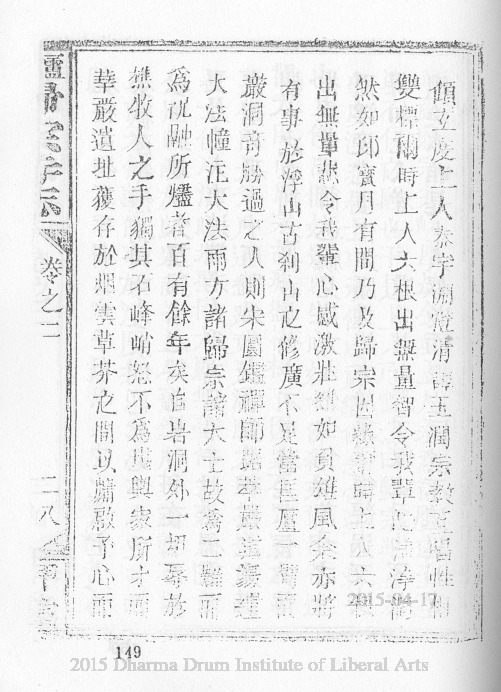 傾立度上人泰宇淵澄清譚玉潤宗教互唱性相
雙標爾時上人大根出無量智令我輩
然如印寶月有間乃及歸宗因緣爾時上人大
出無量悲令我輩心感激壯烈如負雄風余亦將
有事於浮山古剎山之修廣不足當匡廬一臂而
巖洞奇勝過之人則宋圓鑑禪師
大法幢注大法雨方諸歸宗諸大士故為二難而
為祝融所燼者百有餘年矣自岩洞外一切辱於
樵牧人之手獨其石峰峭怒不為 與 所才而
華嚴遺址獲存於烟雲草芥之間以牖啟予心而
卷之二
二八
149
2015-04-17
2015 Dharma Drum Institute of Liberal Arts